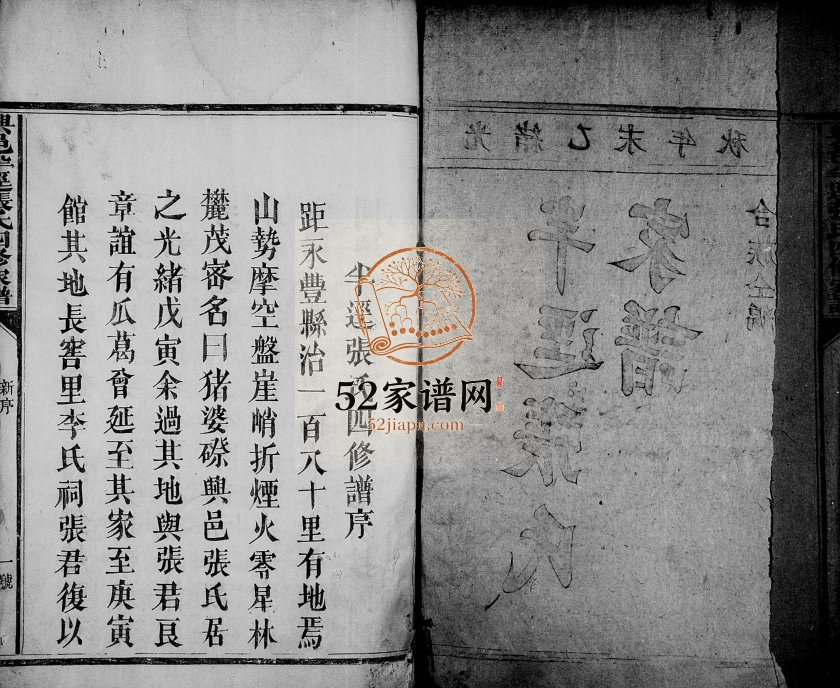 光緒乙未年秋
半逕張氏
家譜
合族全編
半逕張氏四修譜序
距永豐縣治一百八十里有地焉
山勢摩空盤崖峭折煙火零星林
麓茂密名曰猪婆磜興邑張氏居
之光緒戊寅余過其地與張君良
章誼有瓜葛曾延至其家至庚寅
館其地長窖里李氏祠張君復以
興邑半逕張氏四修家譜
新序
一號
52家谱网
52jiapu.com